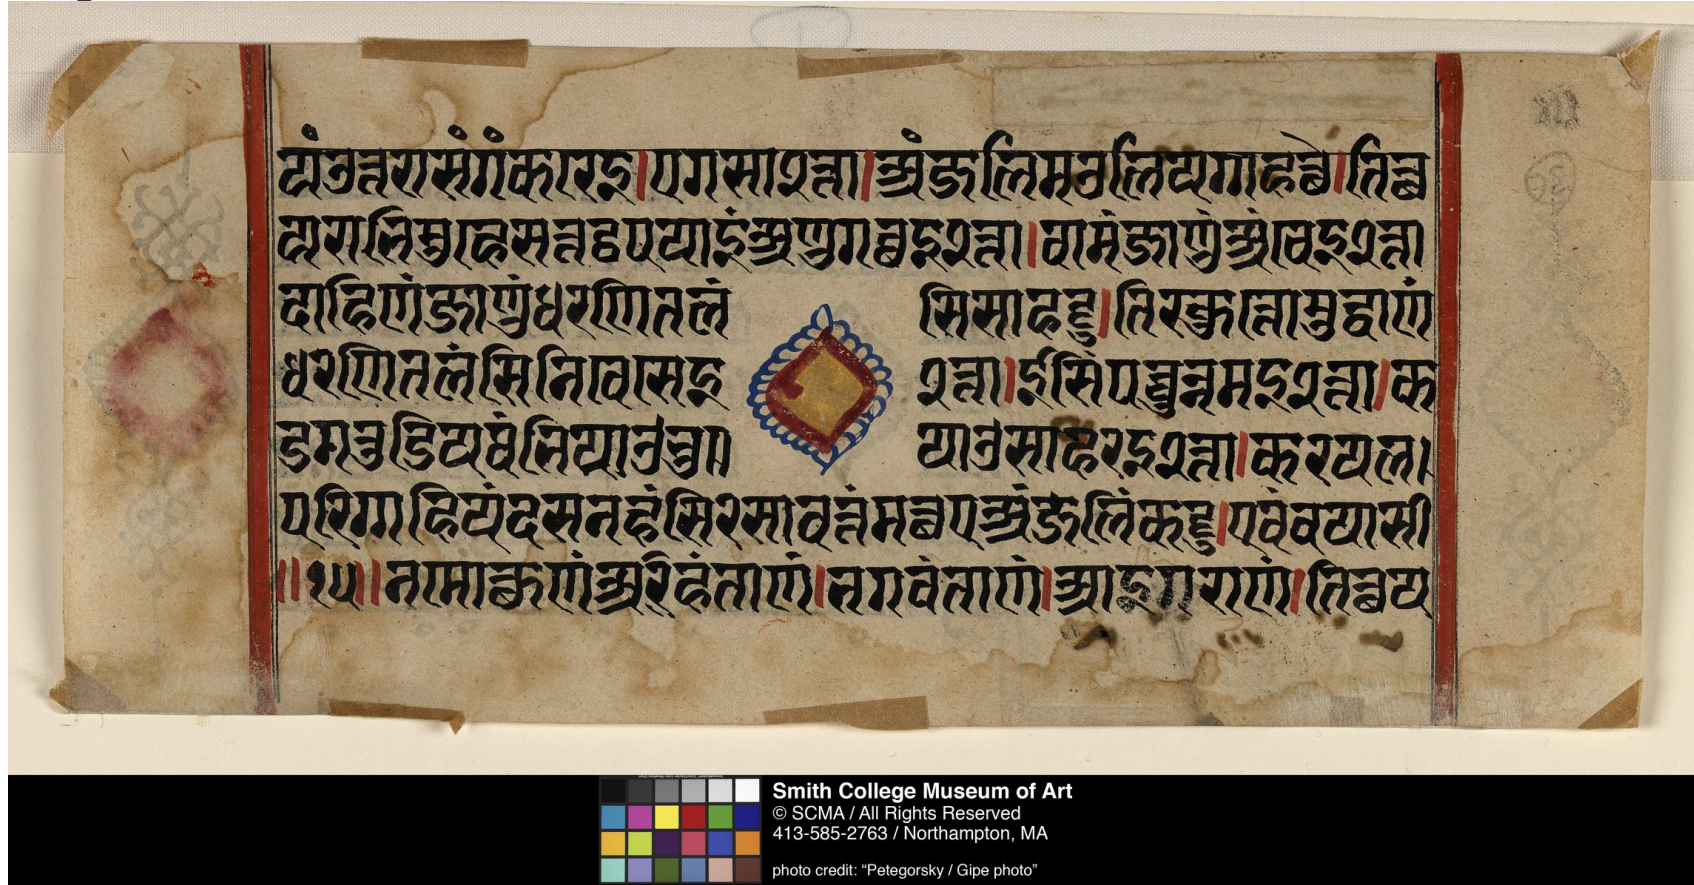 यंउत्तरासंगंकरेइ।एगसा२त्ता।अंजलिमउलियगाहत्थे।तित्थ
यराभिमुहेसत्तट्ठपयाइंअणुगच्छइ२त्ता।वामंजाणुंअंचेइ२त्ता
दाहिणंजाणुंधरणितलं सिसाहट्टु।तिक्खुत्तोमुद्धाणं
धरणितलंसिनिवेसेइ २त्ता।ईसिंपच्चुन्नमइ२त्ता।क
डगतुडियथंभियाओभु॥ याओसाहरइ२त्ता।करयल।
परिग्गहियंदसनहंसिरसावत्तंमत्थएअंजलिंकट्टु।एवंवयासी
॥१५॥नमोत्थुणंअरिहंताणं।भगवंताणं।आइगराणं।तित्थय
Smith College Museum of Art
© SCMA / All Rights Reserved
413-585-2763 / Northampton, MA
photo credit: “Petegorsky / Gipe photo”